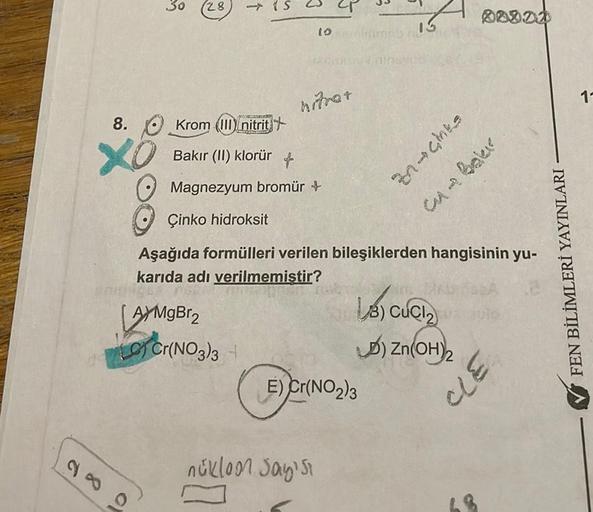 30 28 → 15
10
15
nitrat
8. Krom (III) nitrit +
Bakır (II) klorür +
Magnezyum bromür +
Çinko hidroksit
Zn → Çinko
Cu → Bakır
Aşağıda formülleri verilen bileşiklerden hangisinin yu-
karıda adı verilmemiştir?
A) MgBr₂ B) CuCl₂
C) Cr(NO₃)₃ D) Zn(OH)₂
E) Cr(NO₂)₃
CLE
nükleon sayısı
68
FEN BİLİMLERİ YAYINLARI
1